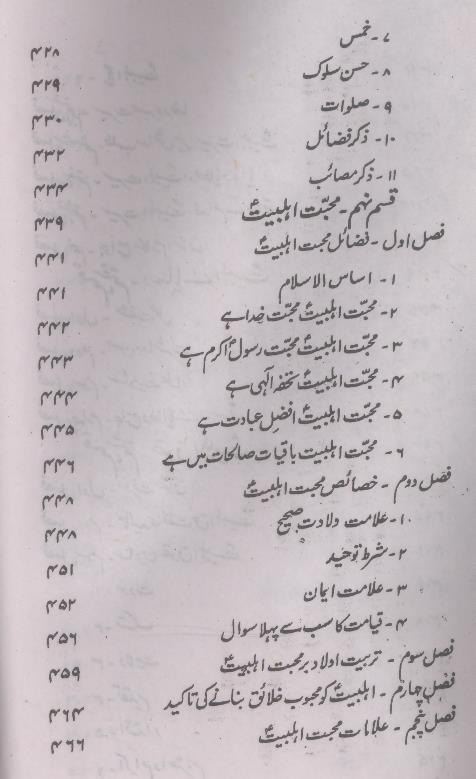 ۷ - خمس ۴۲۸
۸ - حسن سلوک ۴۲۹
۹ - صلوات ۴۳۰
۱۰ - ذکر فضائل ۴۳۲
۱۱ - ذکر مصائب ۴۳۴
قسم نہم - محبّت اہلبیتؑ ۴۳۹
فصل اول - فضائل محبت اہلبیتؑ ۴۴۱
۱ - اساس الاسلام ۴۴۱
۲ - محبّت اہلبیتؑ محبّت خدا ہے ۴۴۲
۳ - محبّت اہلبیتؑ محبّت رسولؐ اکرم ہے ۴۴۳
۴ - محبّت اہلبیتؑ تحفہ الٰہی ہے ۴۴۴
۵ - محبّت اہلبیتؑ افضل عبادت ہے ۴۴۵
۶ - محبّت اہلبیت باقیات صالحات میں ہے ۴۴۶
فصل دوم - خصائص محبت اہلبیتؑ ۴۴۸
۱ - علامت ولادت صحیح ۴۴۸
۲ - شرط توحید ۴۵۱
۳ - علامت ایمان ۴۵۲
۴ - قیامت کا سب سے پہلا سوال ۴۵۶
فصل سوم - تربیت اولاد بر محبت اہلبیتؑ ۴۵۹
فصل چہارم - اہلبیتؑ کو محبوب خلائق بنانے کی تاکید ۴۶۴
فصل پنجم - علامات محبت اہلبیتؑ ۴۶۶